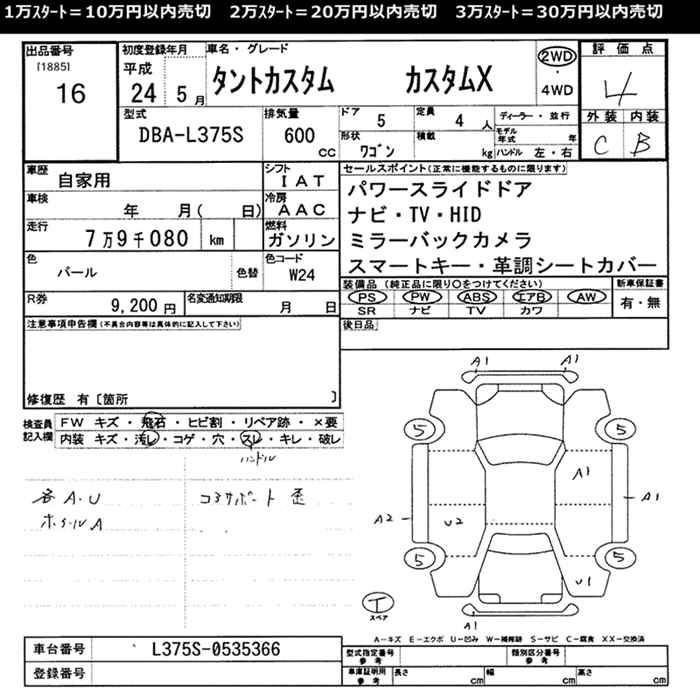 1万ｽﾀｰﾄ＝10万円以内売切　2万ｽﾀｰﾄ＝20万円以内売切　3万ｽﾀｰﾄ＝30万円以内売切
出品番号
[1885]
16
初度登録年月
平成
24 5 月
車名・グレード
タントカスタム カスタムX
2WD
・
4WD
評価点
4
外装 内装
C B
型式
DBA-L375S
排気量
600
CC
ドア
5
定員
4 人
形状
ワゴン
積載
kg
ディーラー・並行
モデル年式 年
ハンドル 左・右
車歴
自家用
シフト
IAT
車検
年 月( 日)
冷房
AAC
走行
7万9千080 km
燃料
ガソリン
色
パール
色替
色コード
W24
R券
9,200 円
名変通知期限
月 日
セールスポイント(正常に機能するものに限ります)
パワースライドドア
ナビ・TV・HID
ミラーバックカメラ
スマートキー・革調シートカバー
装備品 (純正品に限り○をつけてください)
PS PW ABS エアB AW
SR ナビ TV カワ
新車保証書
有・無
後日品
注意事項申告欄(不具合内容等は具体的に記入して下さい)
修復歴 有〔箇所 〕
検査員
記入欄
FW キズ・飛石・ヒビ割・リペア跡・×要
内装 キズ・汚レ・コゲ・穴・スレ・キレ・破レ
ハンドル
各A・U
コアサポート歪
A1 A1
5 5
A1
A1
A2
U2
5 5
U1
T
スペア
A1
A-キズ E-エクボ U-凹み W-補修跡 S-サビ C-腐食 XX-交換済
車台番号
L375S-0535366
登録番号
型式指定番号
参考
類別区分番号
参考
車庫証明用
参考
長さ cm
幅 cm
高さ cm